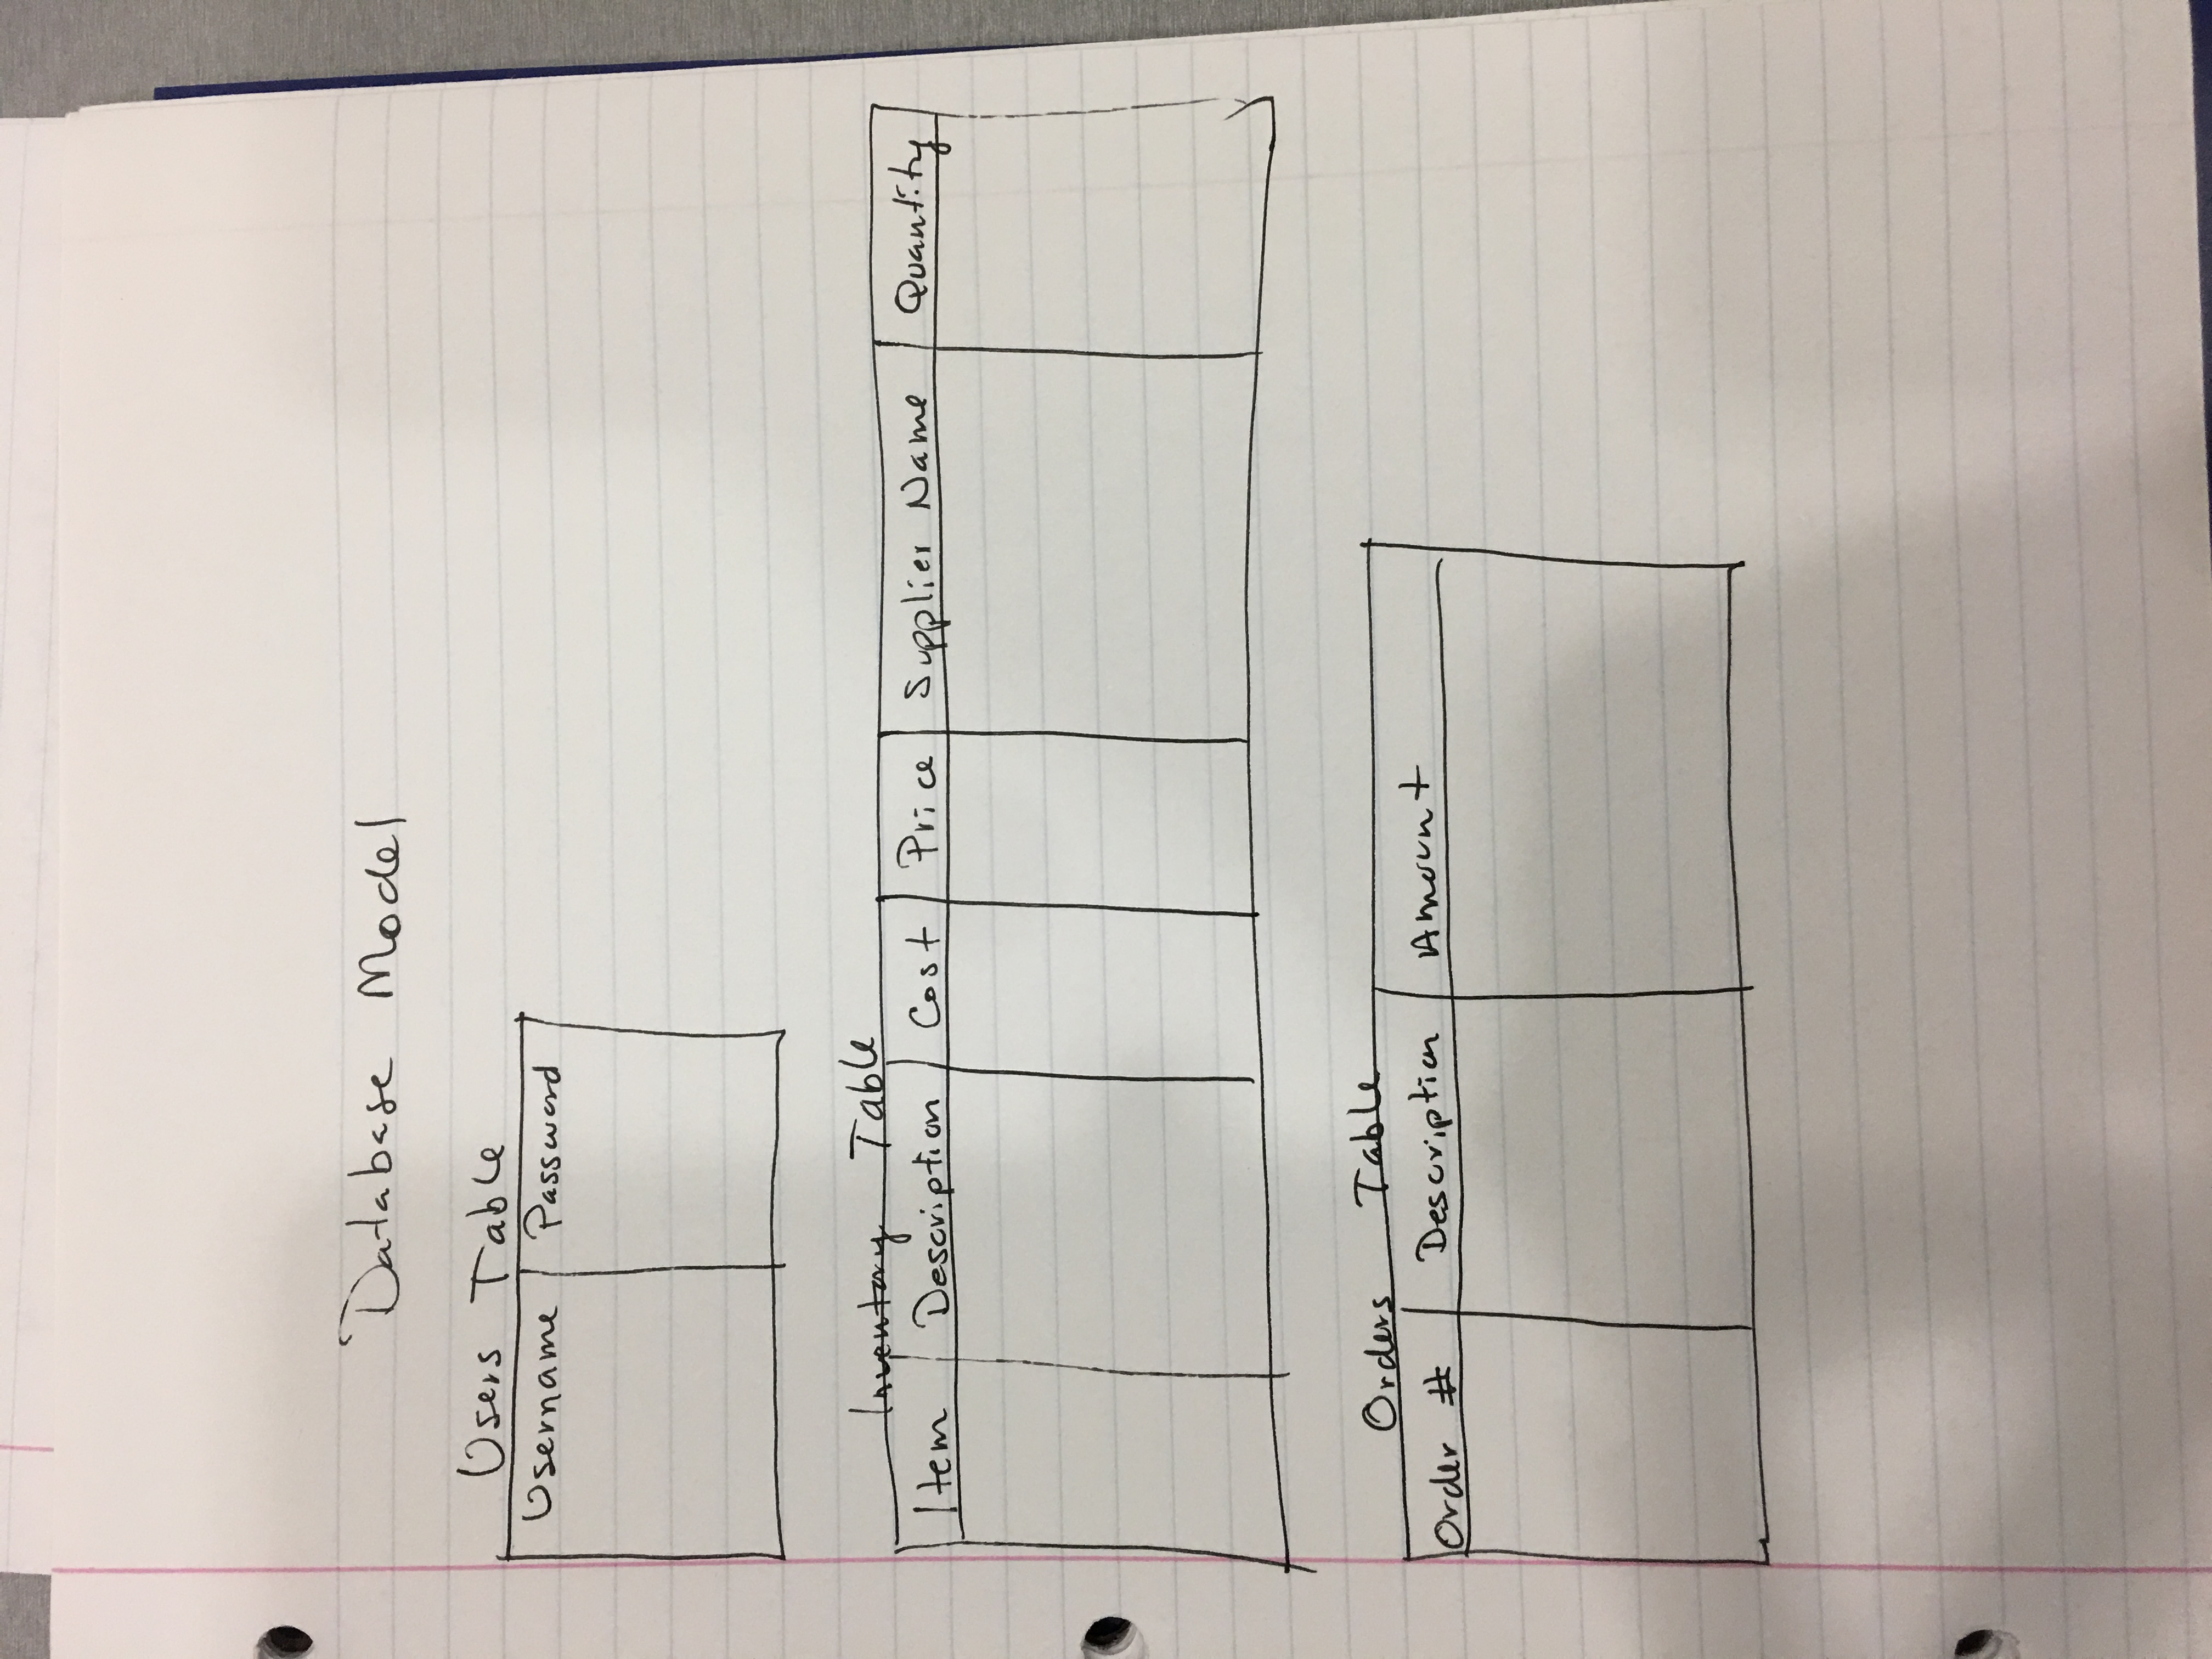 Database Model
Users Table
Username Password
Inventory Table
Item Description Cost Price Supplier Name Quantity
Orders Table
Order # Description Amount